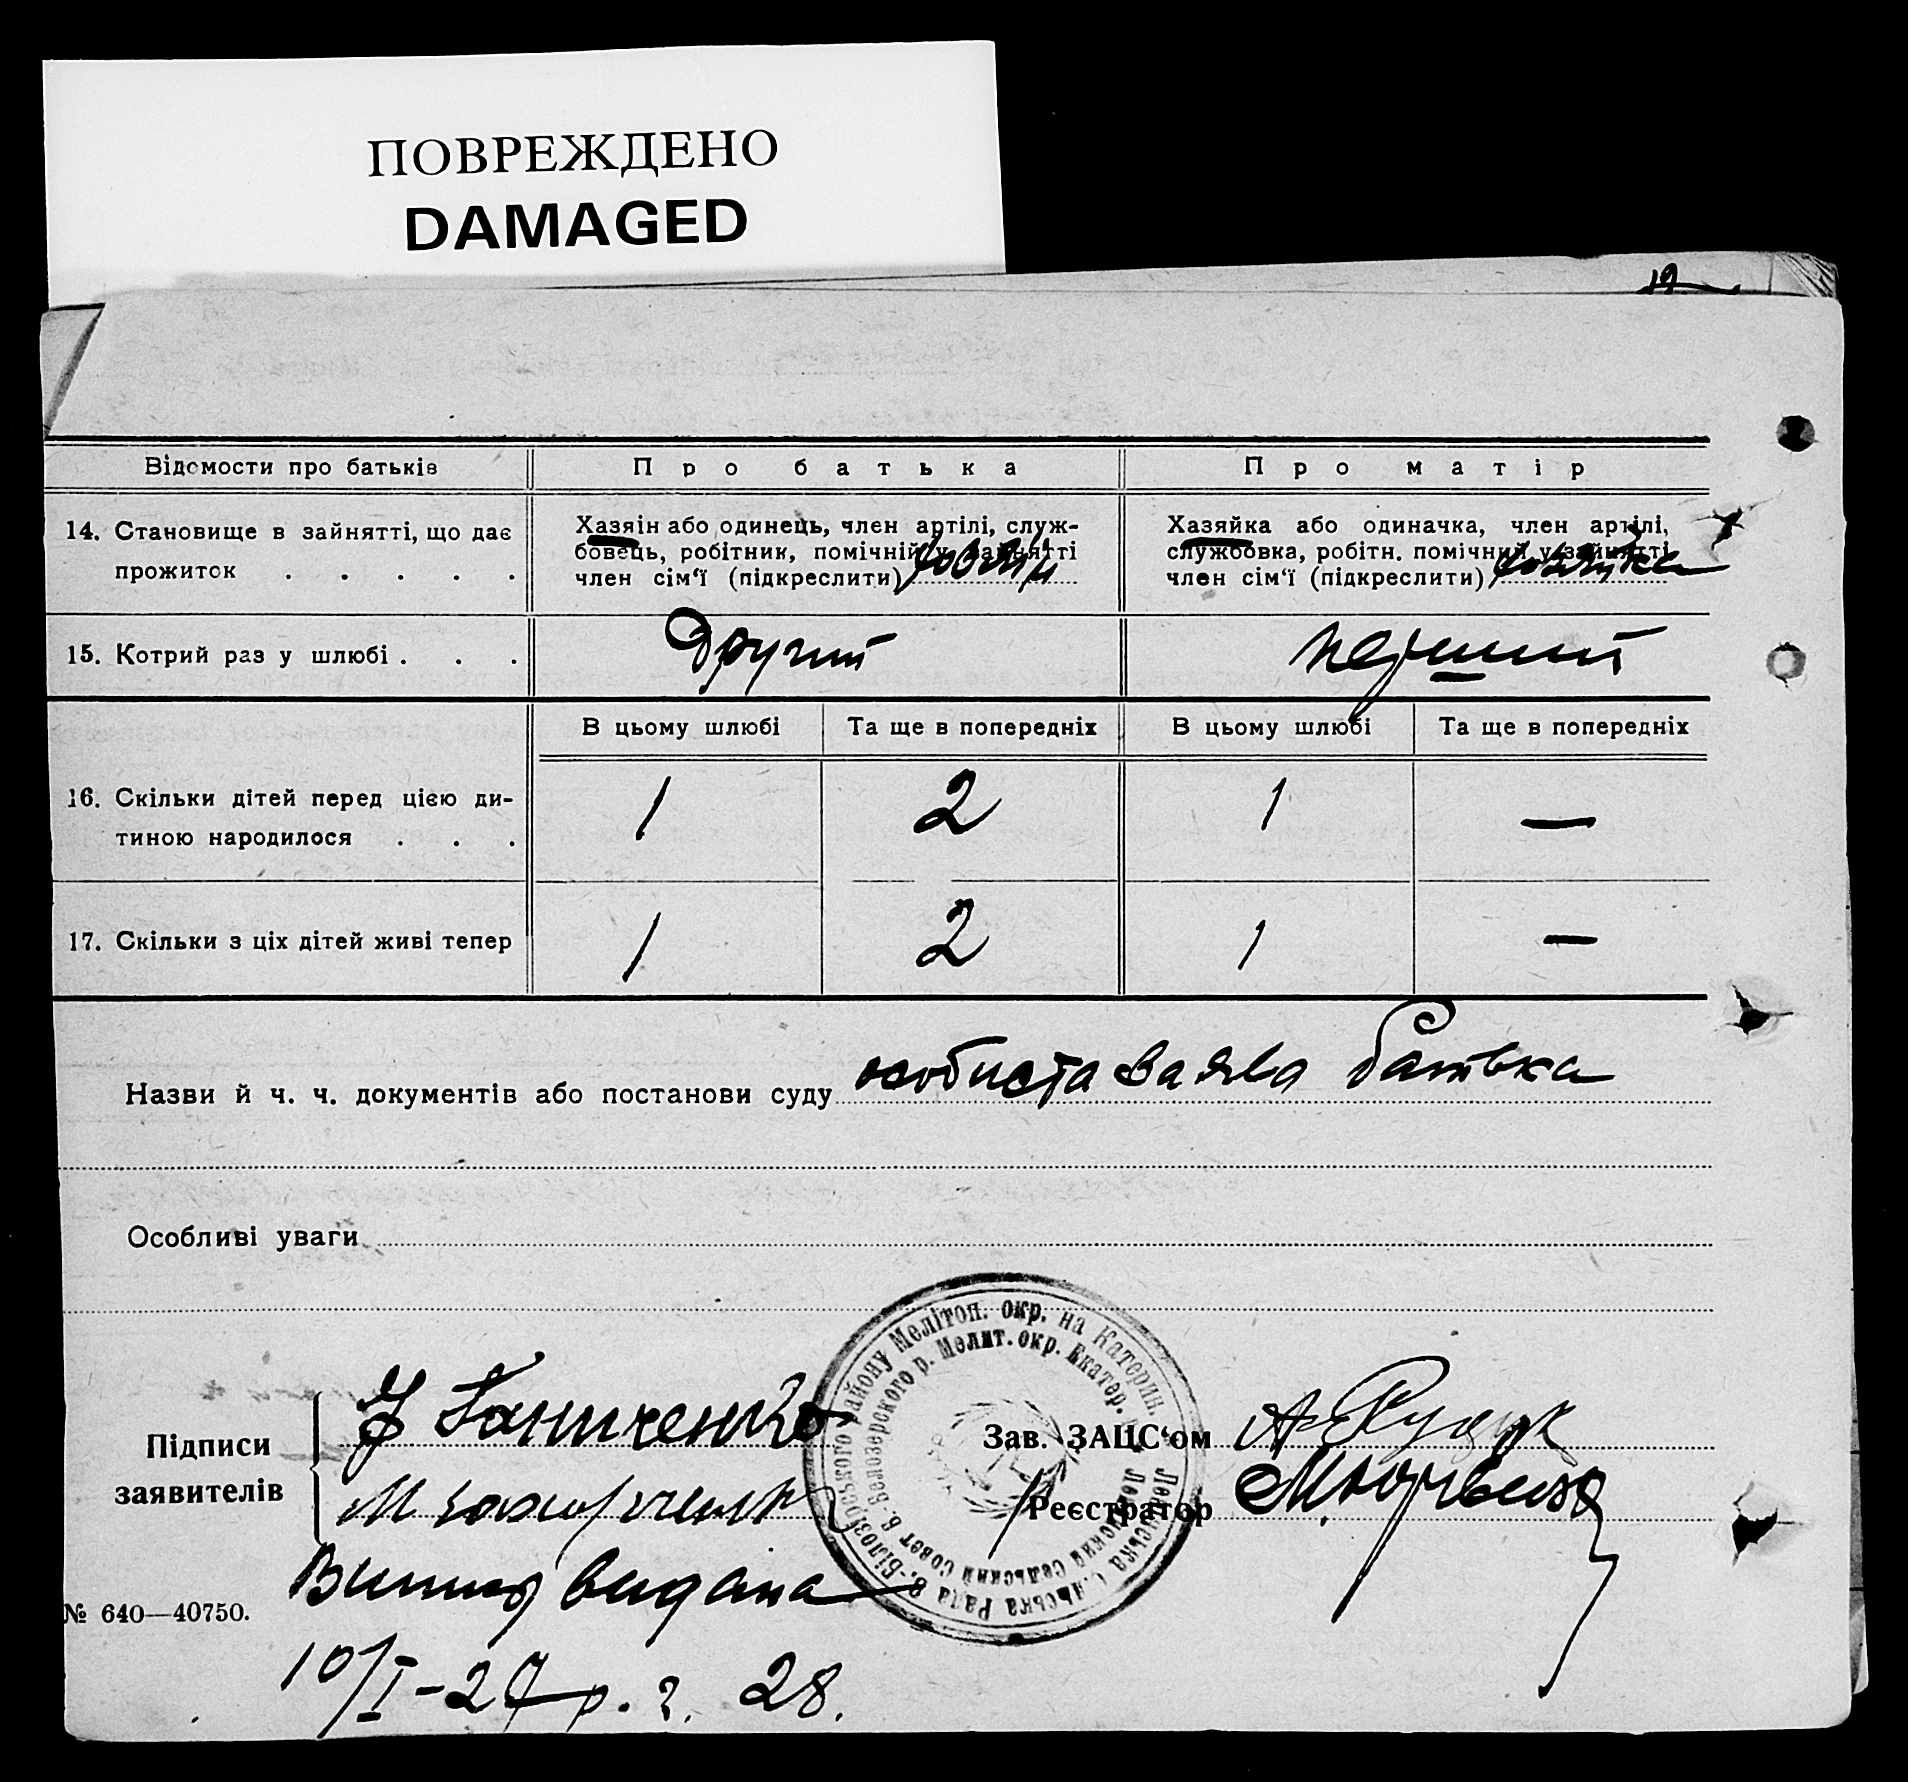 ПОВРЕЖДЕНО
DAMAGED
19
Відомости про батьків
Про батька
Про матір
14. Становище в зайнятті, що дає
прожиток . . . . .
Хазяін або одинець, член артілі, служ-
бовець, робітник, помічній у зайнятті
член сім‘ї (підкреслити) хозяїн
Хазяйка або одиначка, член артілі,
службовка, робітн. помічний у зайнятті
член сім‘ї (підкреслити) хозяйка
15. Котрий раз у шлюбі . . .
другий
перший
В цьому шлюбі
Та ще в попередніх
В цьому шлюбі
Та ще в попередніх
16. Скільки дітей перед цією ди-
тиною народилося . . .
1
2
1
—
17. Скільки з ціх дітей живі тепер
1
2
1
—
Назви й ч. ч. документів або постанови суду особиста заява батька
Особливі уваги
Підписи
заявителів
Зав. ЗАЦС‘ом
Реєстратор
Сільська Рада В.-Білозірського району Мелітоп. окр. на Катерин.
Сельский Совет В. Белозерского р. Мелит. окр. Екатер.
видана
№ 640—40750.
10/I-27 р. 2. 28.